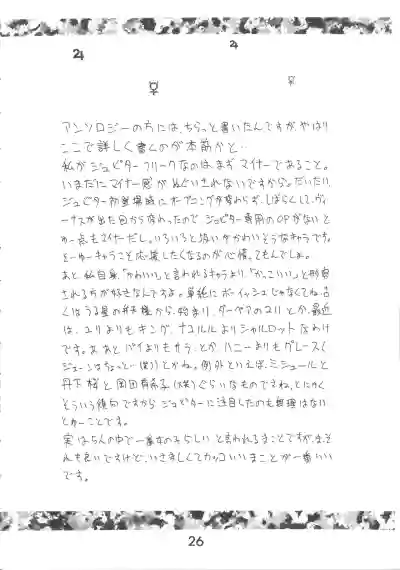 アンソロジーの方には、ちらっと書いたんですが、やはり
ここで詳しく書くのが本筋かと…
私がジュピターフリークなのは、まずマイナーであること。
いまだにマイナー感がぬぐいきれないですから。だいたい、
ジュピター初登場後にオープニングが変わらず、しばらくして、ヴィ
ーナスが出た回から変わったので ジュピター専用のOPがないと
ゆー点もマイナーだし。いろいろと かわいそうなキャラです。
そーゆーキャラこそ応援したくなるのが心情。てもんでしょ。
あと、私自身「かわいい」と言われるキャラより「かっこいい」と形容
される方が好きなんですよ。単純にボーイッシュじゃなくてね。古
くはうる星の弁天様から始まり、ダーペアのユリとか、最近
は、ユリよりもキング、ナコルルよりシャルロットなわけ
です。あ、あと パイよりもサラ、とか、ハニーよりもグレース(
ジェーンはちょっと…(笑))とかね。例外といえば、ミシュールと
丹下桜と岡田有希子(笑)ぐらいなものですね。とにかく
そういう傾向ですから ジュピターに注目したのも無理はない
とゆーことです。
実は5人の中で一番女のみらしいと言われるまことですが、ま、そ
れも良いですけど、いさましくてカッコいいまことが一番いい
です。
26